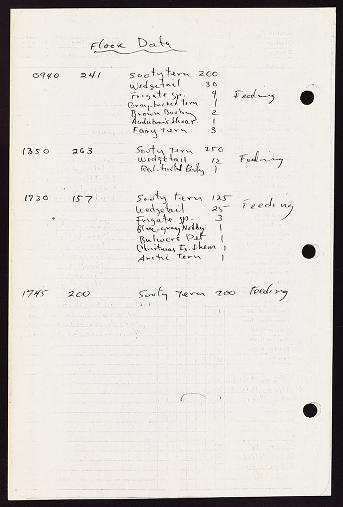 Flock Data
0940 241 Sooty tern 200
Wedgetail 30
Frigate sp. 4 Feeding
Gray-backed tern 1
Brown Booby 2
Audubon's Shear. 1
Fairy tern 3
1350 263 Sooty tern 250
Wedgetail 12 Feeding
Red-footed Booby 1
1730 157 Sooty tern 125
Wedgetail 25 Feeding
Frigate sp. 3
Blue-gray Noddy 1
Bulwers Pet 1
Christmas Is. Shear 1
Arctic Tern 1
1745 200 Sooty tern 200 Feeding